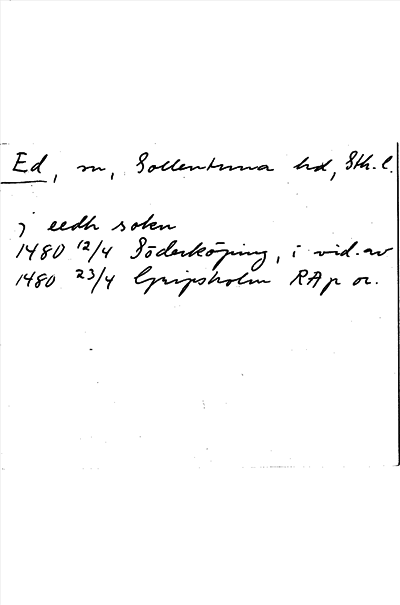 Ed, sn, Sollentuna hd, Sth. l.
j eedh sokn
1480 12/4 Söderköping, i vid. av
1480 23/4 Gripsholm RAp or.